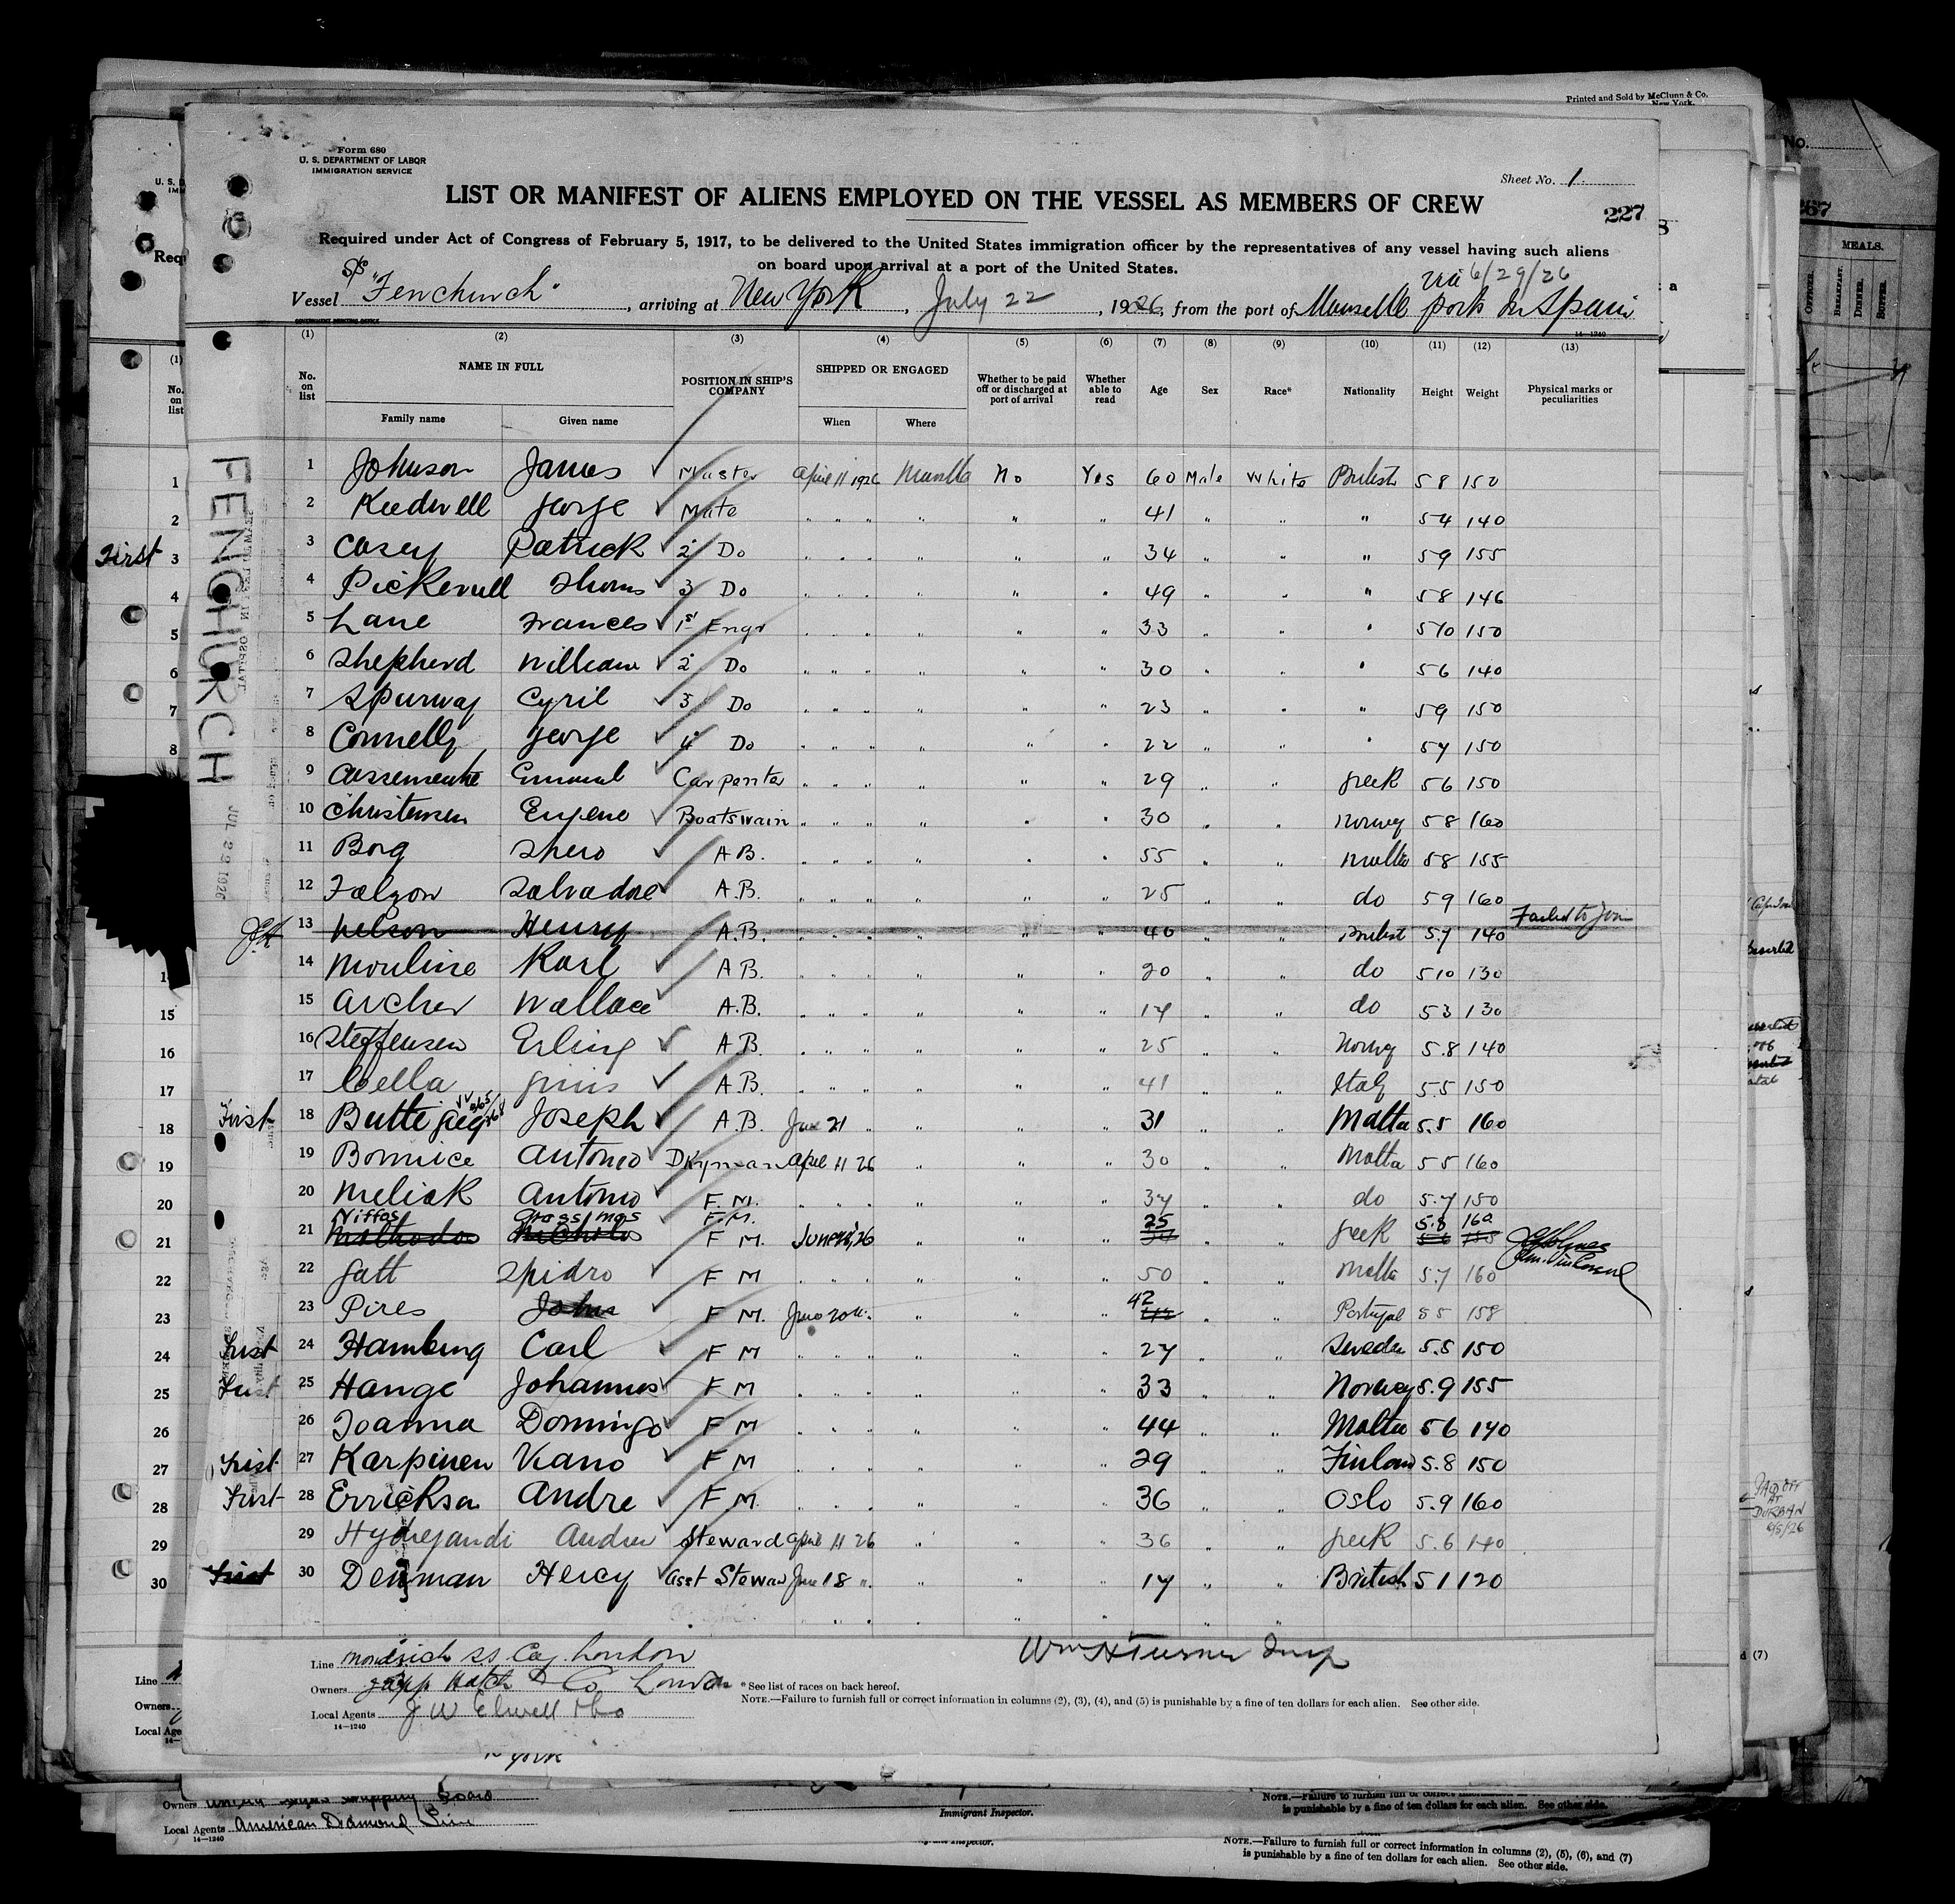 Printed and Sold by McClunn & Co.
New York.
Form 680
U. S. DEPARTMENT OF LABOR
IMMIGRATION SERVICE
Sheet No. 1
LIST OR MANIFEST OF ALIENS EMPLOYED ON THE VESSEL AS MEMBERS OF CREW
227
Required under Act of Congress of February 5, 1917, to be delivered to the United States immigration officer by the representatives of any vessel having such aliens
on board upon arrival at a port of the United States.
via 6/29/26
Vessel S/S "Fenchurch", arriving at New York, July 22, 1926, from the port of Marseille ports in Spain
GOVERNMENT PRINTING OFFICE
14—1240
(1) (2) (3) (4) (5) (6) (7) (8) (9) (10) (11) (12) (13)
No. on list NAME IN FULL POSITION IN SHIP'S COMPANY SHIPPED OR ENGAGED Whether to be paid off or discharged at port of arrival Whether able to read Age Sex Race* Nationality Height Weight Physical marks or peculiarities
Family name Given name When Where
FENCHURCH
JUL 29 1926
1 Johnson James Master April 11 1926 No Yes 60 Male White British 5 8 150
2 George Mate " " " " " " 41 " " " 5 4 140
3 Casey Patrick 2 Do " " " " " " 34 " " " 5 9 155
4 Thomas 3 Do " " " " " " 49 " " " 5 8 146
5 Lane Frances 1st Engr " " " " " " 33 " " " 5 10 150
6 Shepherd William 2 Do " " " " " " 30 " " " 5 6 140
7 Spurway Cyril 3 Do " " " " " " 23 " " " 5 9 150
8 Connelly George 4 Do " " " " " " 22 " " " 5 7 150
9 Carpenter " " " " " " 29 " " Greek 5 6 150
10 Christensen Eugene Boatswain " " " " " " 30 " " Norway 5 8 160
11 Borg Spero A B. " " " " " " 55 " " Malta 5 8 155
12 Falzon Salvadore A.B. " " " " " " 25 " " do 5 9 160
13 Nelson Henry A.B. " " " " " " 46 " " British 5.7 140 Failed to Join
14 Mouline Karl A B. " " " " " " 20 " " do 5 10 130
15 Archer Wallace A.B. " " " " " " 17 " " do 5 3 130
16 Steffensen Erling A B. " " " " " " 25 " " Norwy 5.8 140
17 A.B. " " " " " " 41 " " Italy 5.5 150
First 18 Buttigieg Joseph A.B. June 21 " " " 31 " " Malta 5.5 160
19 Bonnice Antonio Dkyman April 11 26 " " " 30 " " Malta 5 5 160
20 Meliak Antonio F. M. " " " " " " 37 " " do 5.7 150
Niffos F.M. 25 5.8 160
21 F M. June 26 " " " " " Greek
22 Gatt Spidro F M " " " " " " 50 " " Malta 5.7 160
23 Pires John F M. June 20 " " " 42 " " Portugal 5 5 158
First 24 Hamburg Carl F M " " " " " " 27 " " Sweden 5.5 150
First 25 Hange Johannes F M " " " " " " 33 " " Norway 5.9 155
26 Joanna Domingo F M " " " " " " 44 " " Malta 5 6 140
First 27 Karpinen Viano F M " " " " " " 29 " " Finland 5.8 150
First 28 Errickson Andre F M. " " " " " " 36 " " Oslo 5.9 160
29 Andrew Steward April 11 26 " " " 36 " " Greek 5.6 140
First 30 Denman Hercy Asst Steward June 18 " " " " 17 " " British 5 1 120
Line S.S. Coy. London
Owners Hatch & Co London
Local Agents J W Elwell & Co
14—1240
Wm H Turner Insp
* See list of races on back hereof.
NOTE.—Failure to furnish full or correct information in columns (2), (3), (4), and (5) is punishable by a fine of ten dollars for each alien. See other side.
N York
Owners
Local Agents American Diamond Line
14—1240
Immigrant Inspector.
is punishable by a fine of ten dollars for each alien. See other side.
NOTE.—Failure to furnish full or correct information in columns (2), (5), (6), and (7)
is punishable by a fine of ten dollars for each alien. See other side.
First
MEALS.
OFFICER. BREAKFAST. DINNER. SUPPER.
PAID OFF
AT
DURBAN